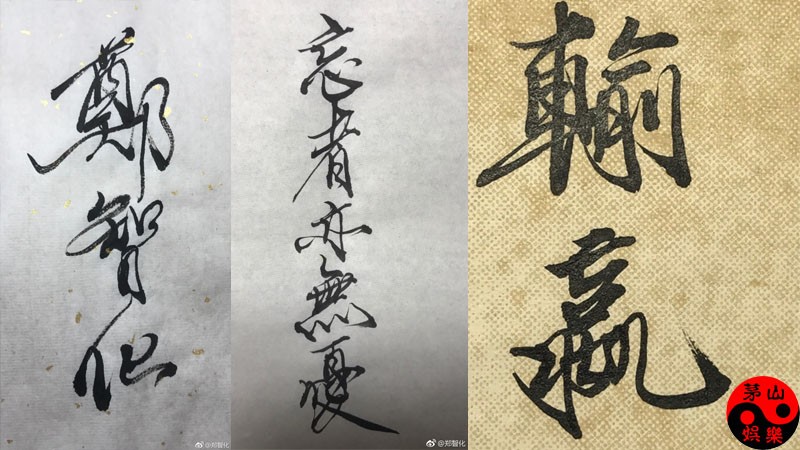 鄭智化
@郑智化
忘者亦無憂
@郑智化
輸
贏
茅山
娛樂